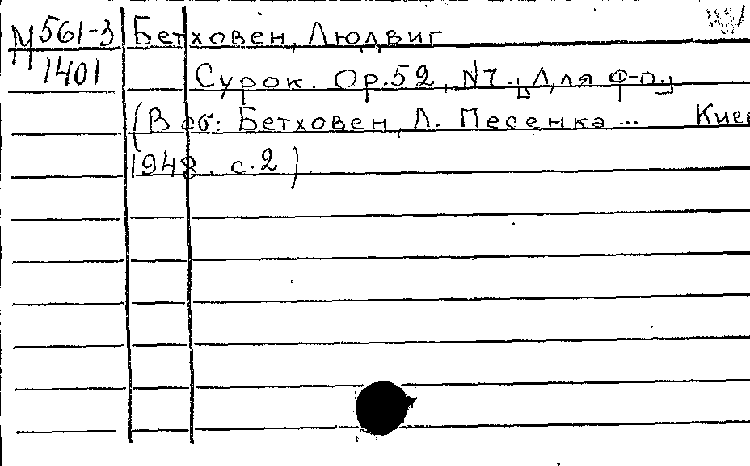 М 561-3 Бетховен, Людвиг
1401 Сурок. Op.52, N7. [Для ф-п.]
(В сб: Бетховен, Л. Песенка... Киев
1948. с.2)